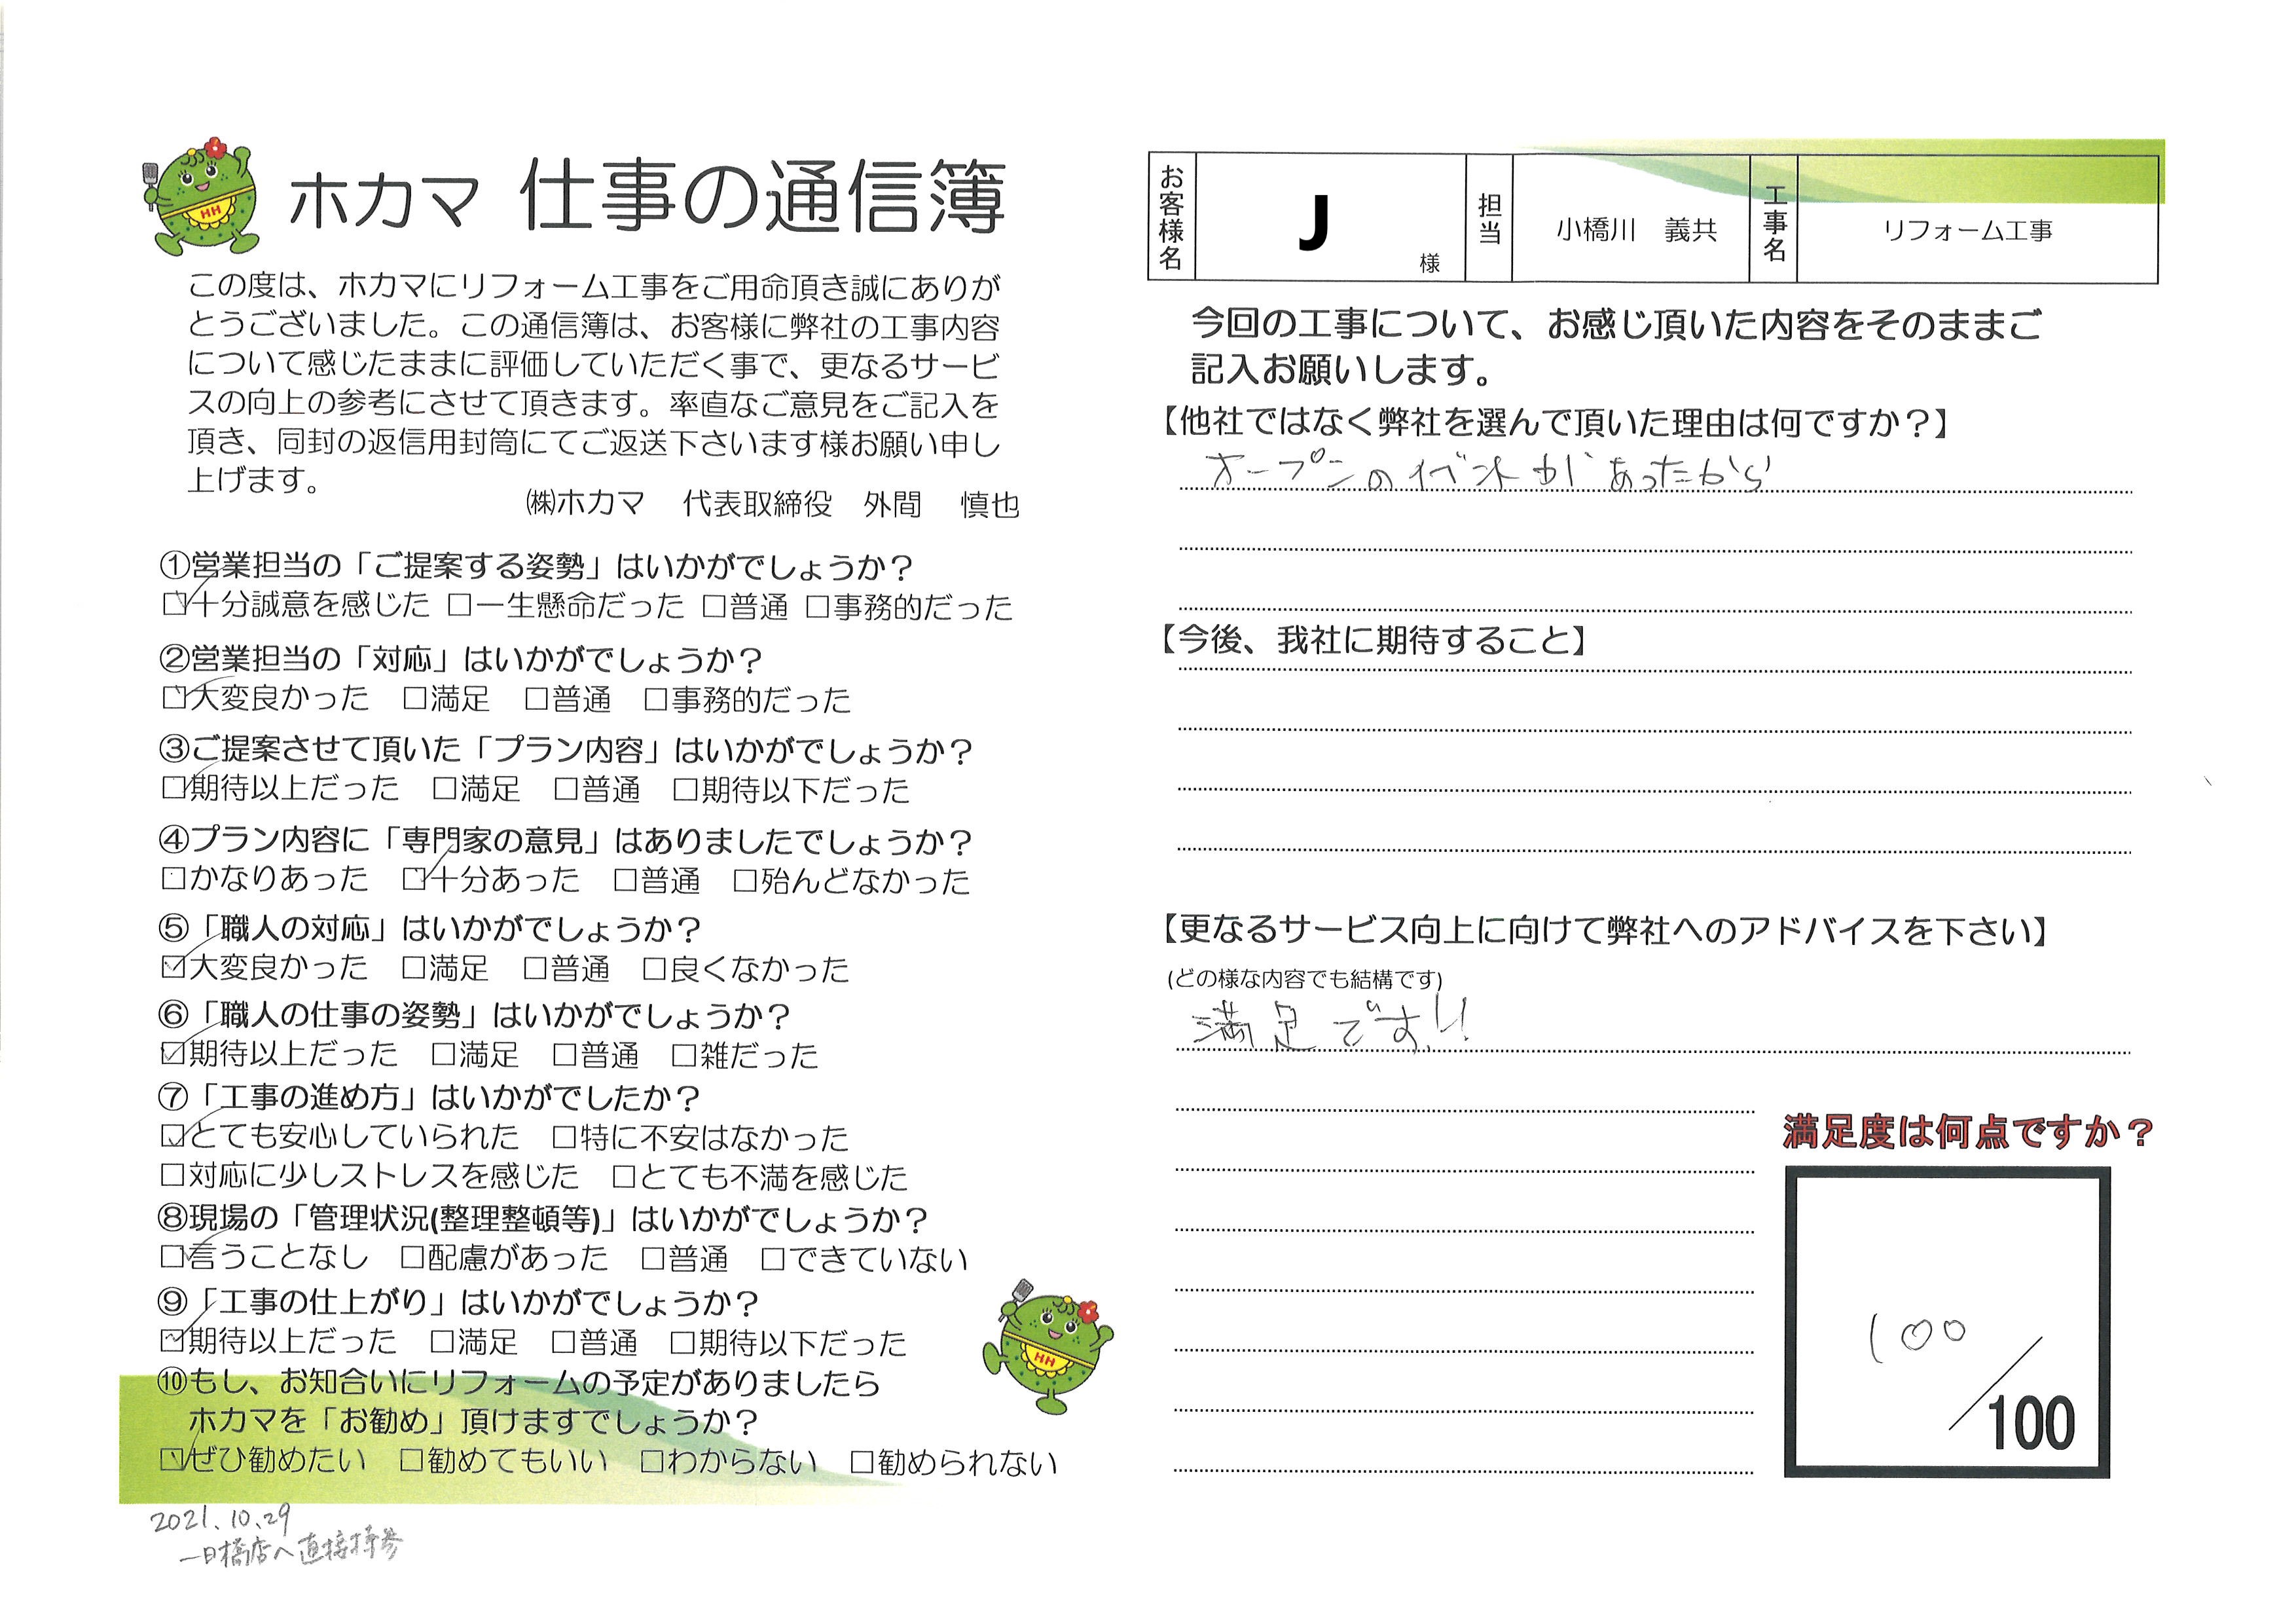 ホカマ 仕事の通信簿
この度は、ホカマにリフォーム工事をご用命頂き誠にありが
とうございました。この通信簿は、お客様に弊社の工事内容
について感じたままに評価していただく事で、更なるサービ
スの向上の参考にさせて頂きます。率直なご意見をご記入を
頂き、同封の返信用封筒にてご返送下さいます様お願い申し
上げます。
㈱ホカマ 代表取締役 外間 慎也
①営業担当の「ご提案する姿勢」はいかがでしょうか？
☑十分誠意を感じた □一生懸命だった □普通 □事務的だった
②営業担当の「対応」はいかがでしょうか？
☑大変良かった □満足 □普通 □事務的だった
③ご提案させて頂いた「プラン内容」はいかがでしょうか？
☑期待以上だった □満足 □普通 □期待以下だった
④プラン内容に「専門家の意見」はありましたでしょうか？
□かなりあった ☑十分あった □普通 □殆んどなかった
⑤「職人の対応」はいかがでしょうか？
☑大変良かった □満足 □普通 □良くなかった
⑥「職人の仕事の姿勢」はいかがでしょうか？
☑期待以上だった □満足 □普通 □雑だった
⑦「工事の進め方」はいかがでしたか？
☑とても安心していられた □特に不安はなかった
□対応に少しストレスを感じた □とても不満を感じた
⑧現場の「管理状況(整理整頓等)」はいかがでしょうか？
☑言うことなし □配慮があった □普通 □できていない
⑨「工事の仕上がり」はいかがでしょうか？
☑期待以上だった □満足 □普通 □期待以下だった
⑩もし、お知合いにリフォームの予定がありましたら
ホカマを「お勧め」頂けますでしょうか？
☑ぜひ勧めたい □勧めてもいい □わからない □勧められない
2021.10.29
一日橋店へ直接持参
HH
HH
お客様名 J 様 担当 小橋川 義共 工事名 リフォーム工事
今回の工事について、お感じ頂いた内容をそのままご
記入お願いします。
【他社ではなく弊社を選んで頂いた理由は何ですか？】
オープンのイベントがあったから
【今後、我社に期待すること】
【更なるサービス向上に向けて弊社へのアドバイスを下さい】
(どの様な内容でも結構です)
満足です!!
満足度は何点ですか？
100/100